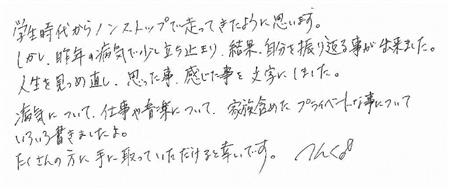 学生時代からノンストップで走ってきたように思います。
しかし、昨年の病気で少し立ち止まり、結果、自分を振り返る事が出来ました。
人生を見つめ直し、思った事、感じた事を文字にしました。
病気について、仕事や音楽について、家族含めたプライベートな事について
いろいろ書きましたよ。
たくさんの方に手に取っていただけると幸いです。 つんく♂